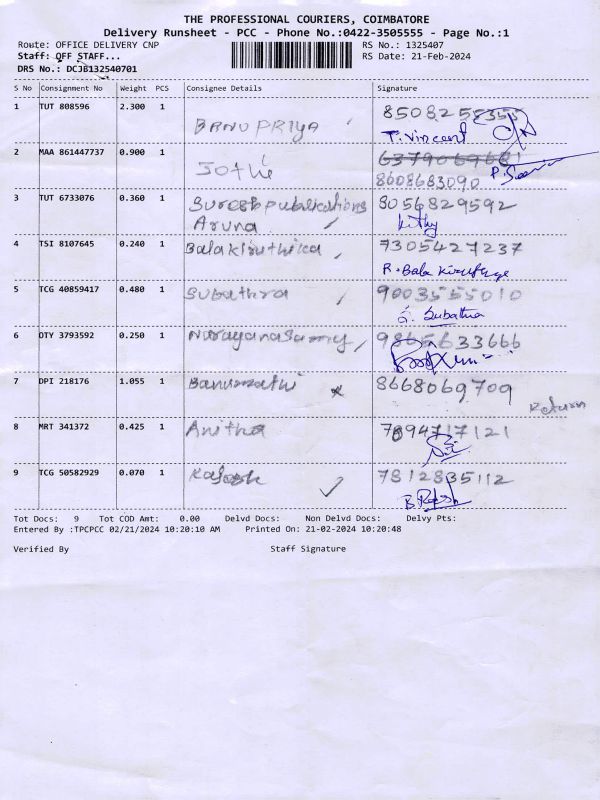 THE PROFESSIONAL COURIERS, COIMBATORE
Delivery Runsheet - PCC - Phone No.:0422-3505555 - Page No.:1
Route: OFFICE DELIVERY CNP RS No.: 1325407
Staff: OFF STAFF... RS Date: 21-Feb-2024
DRS No.: DCJB132540701
S No Consignment No Weight PCS Consignee Details Signature
1 TUT 808596 2.300 1 BANUPRIYA 8508258355
T. Vincent
2 MAA 861447737 0.900 1 Jothi 6379069681
8608683090 P. 
3 TUT 6733076 0.360 1 Suresh publications 8056829592
Aruna Kithy
4 TSI 8107645 0.240 1 Balakiruthika 7305427237
R. Bala
5 TCG 40859417 0.480 1 Subathra 9003555010
S. Subathra
6 DTY 3793592 0.250 1 Narayanasamy 9865633666
7 DPI 218176 1.055 1 Banumathi 8668069709
Return
8 MRT 341372 0.425 1 Anitha 7894717121
9 TCG 50582929 0.070 1 Rajesh 7812835112
B. Rajesh
Tot Docs: 9 Tot COD Amt: 0.00 Delvd Docs: Non Delvd Docs: Delvy Pts:
Entered By :TPCPCC 02/21/2024 10:20:10 AM Printed On: 21-02-2024 10:20:48
Verified By Staff Signature